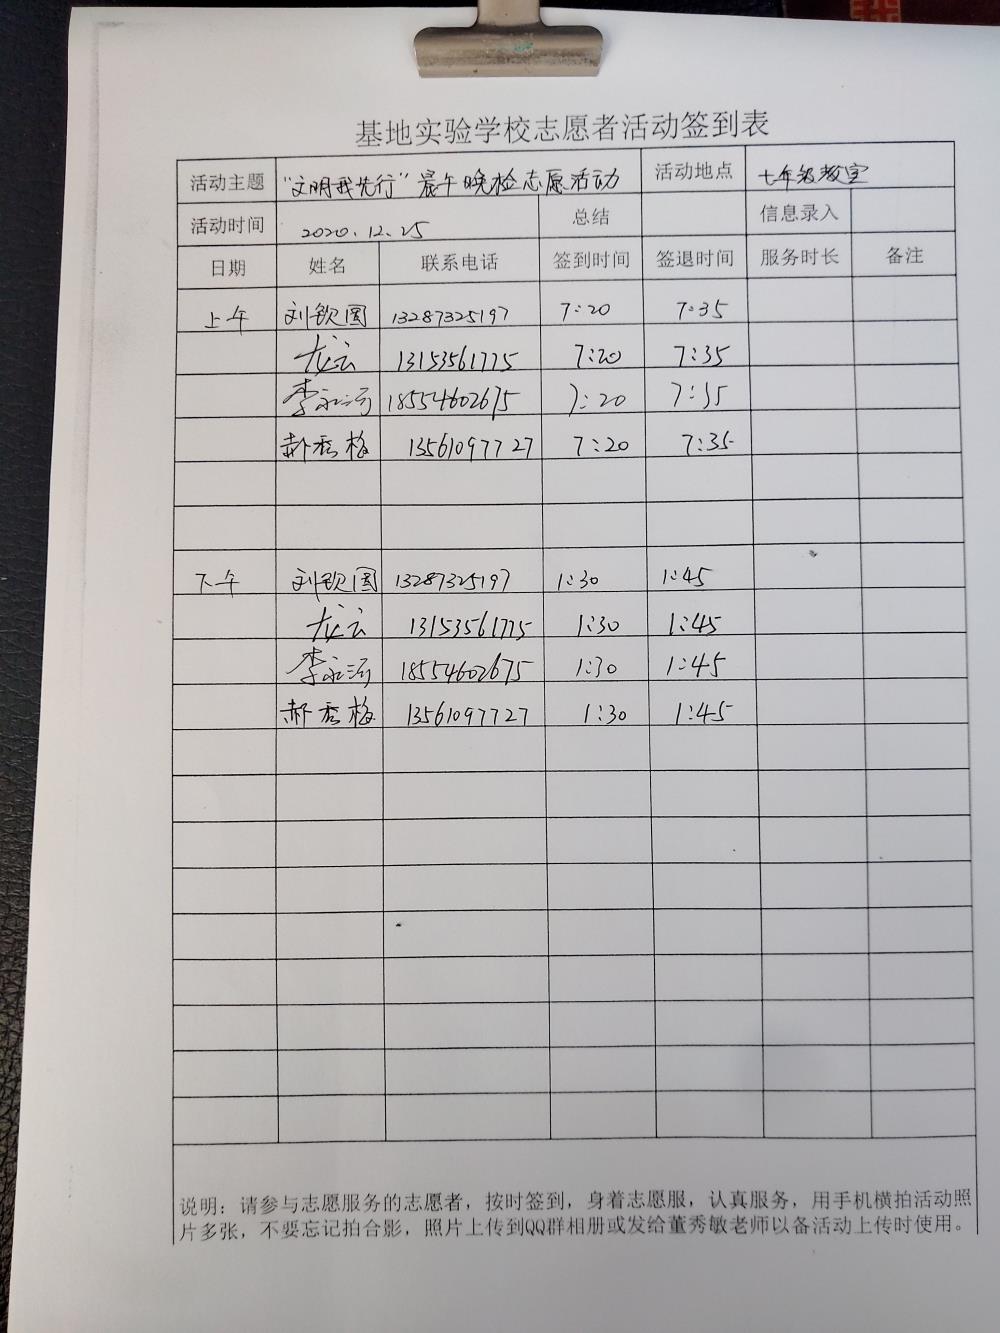 基地实验学校志愿者活动签到表
活动主题 “文明我先行”晨午晚检志愿活动 活动地点 七年级教室
活动时间 2020.12.25 总结 信息录入
日期 姓名 联系电话 签到时间 签退时间 服务时长 备注
上午 刘钦国 13287325197 7:20 7:35
龙云 13153561775 7:20 7:35
李永 18554602675 7:20 7:35
郝秀梅 13561097727 7:20 7:35
下午 刘钦国 13287325197 1:30 1:45
龙云 13153561775 1:30 1:45
李永 18554602675 1:30 1:45
郝秀梅 13561097727 1:30 1:45
说明：请参与志愿服务的志愿者，按时签到，身着志愿服，认真服务，用手机横拍活动照
片多张，不要忘记拍合影，照片上传到QQ群相册或发给董秀敏老师以备活动上传时使用。